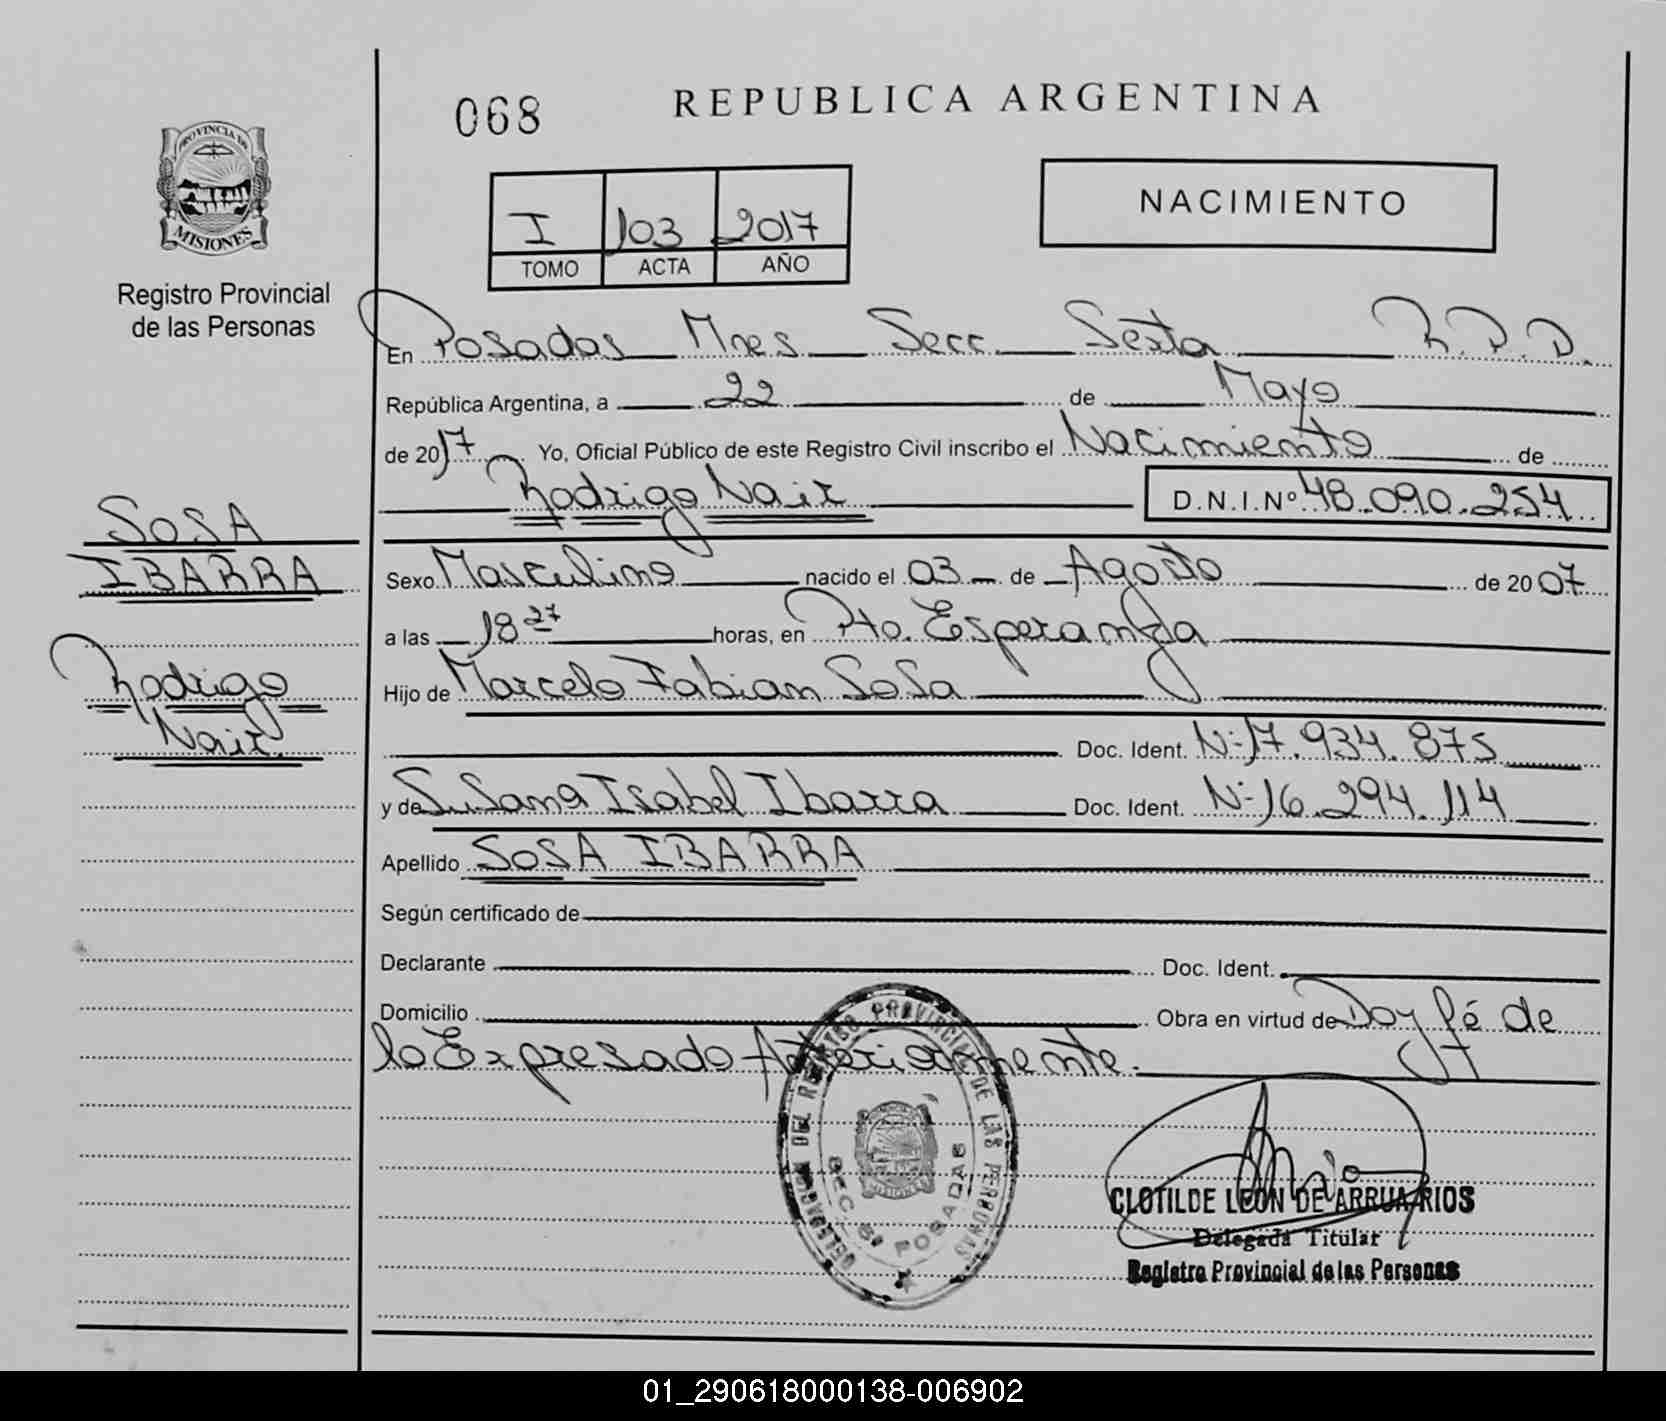 068
REPUBLICA ARGENTINA
PROVINCIA DE
MISIONES
Registro Provincial
de las Personas
NACIMIENTO
I 103 2017
TOMO ACTA AÑO
En Posadas Mnes Secc. Sexta R.P.P.
República Argentina, a 22 de Mayo
de 2017 Yo, Oficial Público de este Registro Civil inscribo el Nacimiento de
Rodrigo Nair D.N.I.Nº 48.090.254
SOSA
IBARRA
Rodrigo
Nair
Sexo Masculino nacido el 03 de Agosto de 2007
a las 18 27 horas, en Pto. Esperanza
Hijo de Marcelo Fabian Sosa
Doc. Ident. Nº 17.934.875
y de Susana Isabel Ibarra Doc. Ident. Nº 16.294.114
Apellido SOSA IBARRA
Según certificado de
Declarante Doc. Ident.
Domicilio Obra en virtud de Doy fé de
lo Expresado Anteriormente.
DELEGACION DEL REGISTRO PROVINCIAL DE LAS PERSONAS
SEC. 6ª POSADAS
MISIONES
CLOTILDE LEON DE ARRUA RIOS
Delegada Titular
Registro Provincial de las Personas
01_290618000138-006902